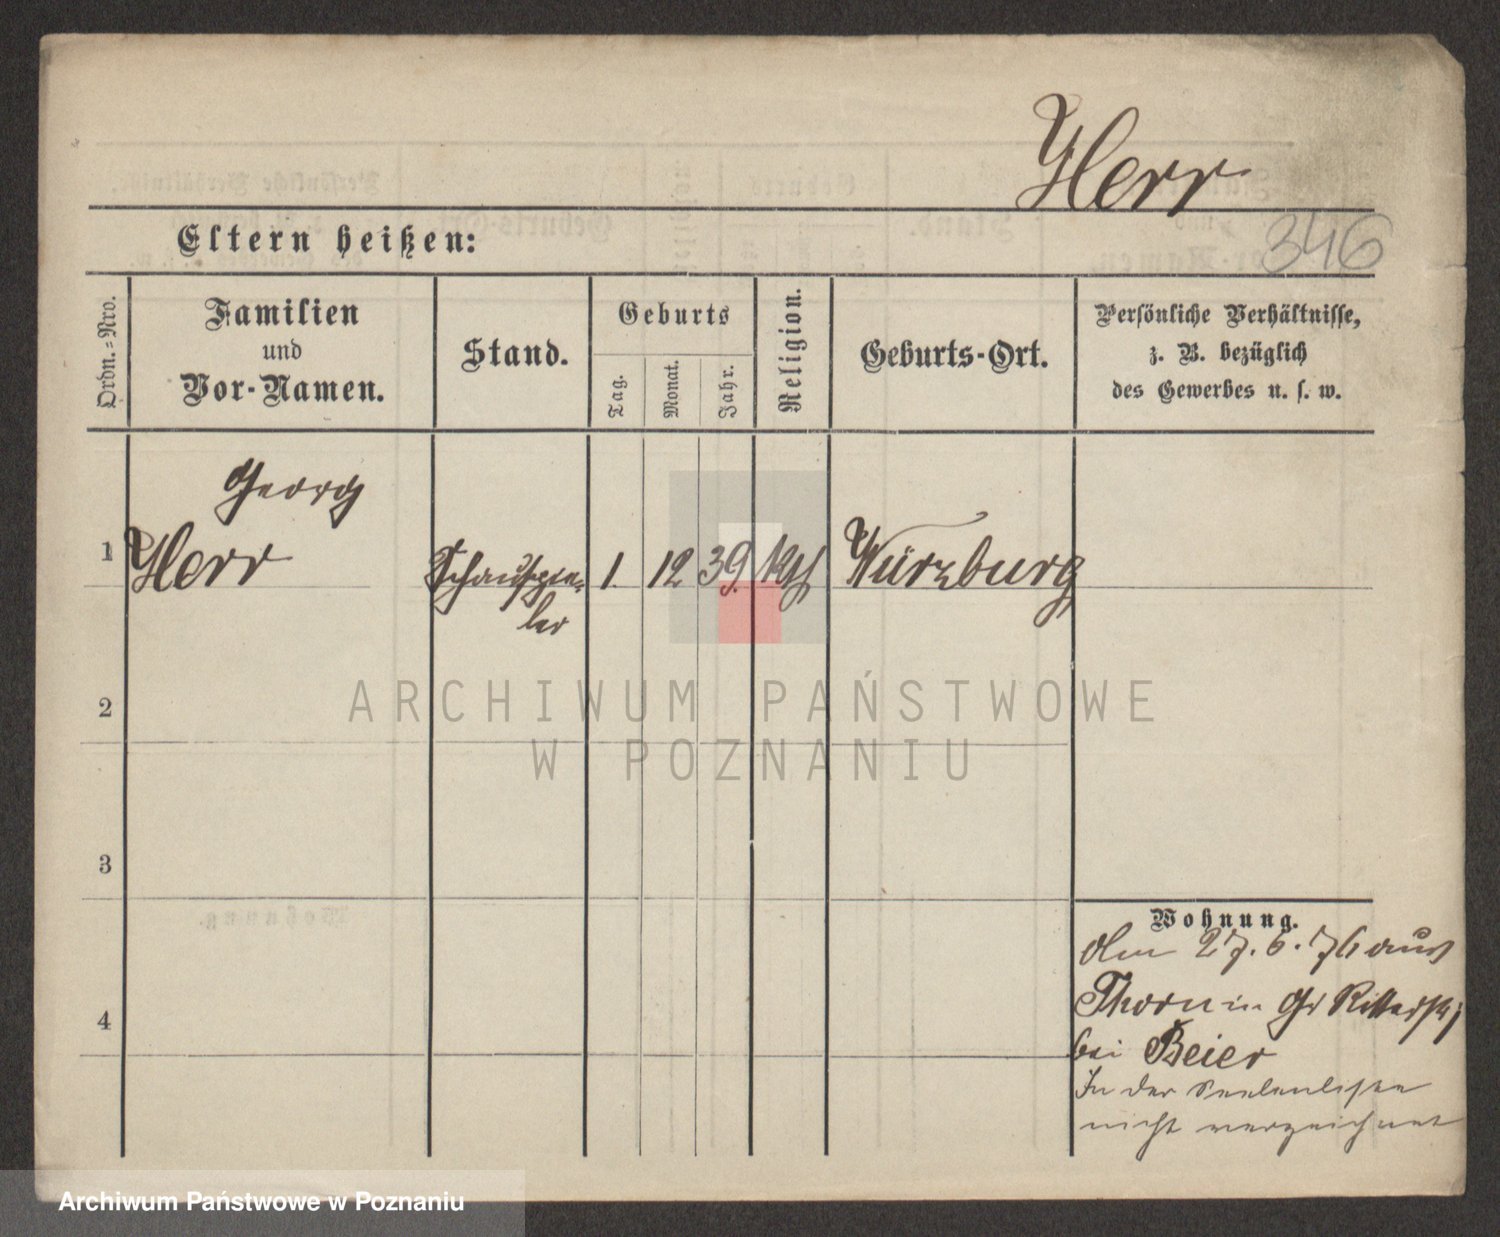 Herr
346
Eltern heißen:
Ordn.-Nro.
Familien
und
Vor-Namen.
Stand.
Geburts
Tag.
Monat.
Jahr.
Religion.
Geburts-Ort.
Persönliche Verhältnisse,
z. B. bezüglich
des Gewerbes u. s. w.
Georg
1 Herr Schauspie- 1. 12 39. kth Würzburg
ler
2
3
4
Wohnung.
27. 6. 76 aus
Thorn in Gr Ritterstr
bei Beier
In der Seelenliste
nicht verzeichnet
ARCHIWUM PAŃSTWOWE
W POZNANIU
Archiwum Państwowe w Poznaniu